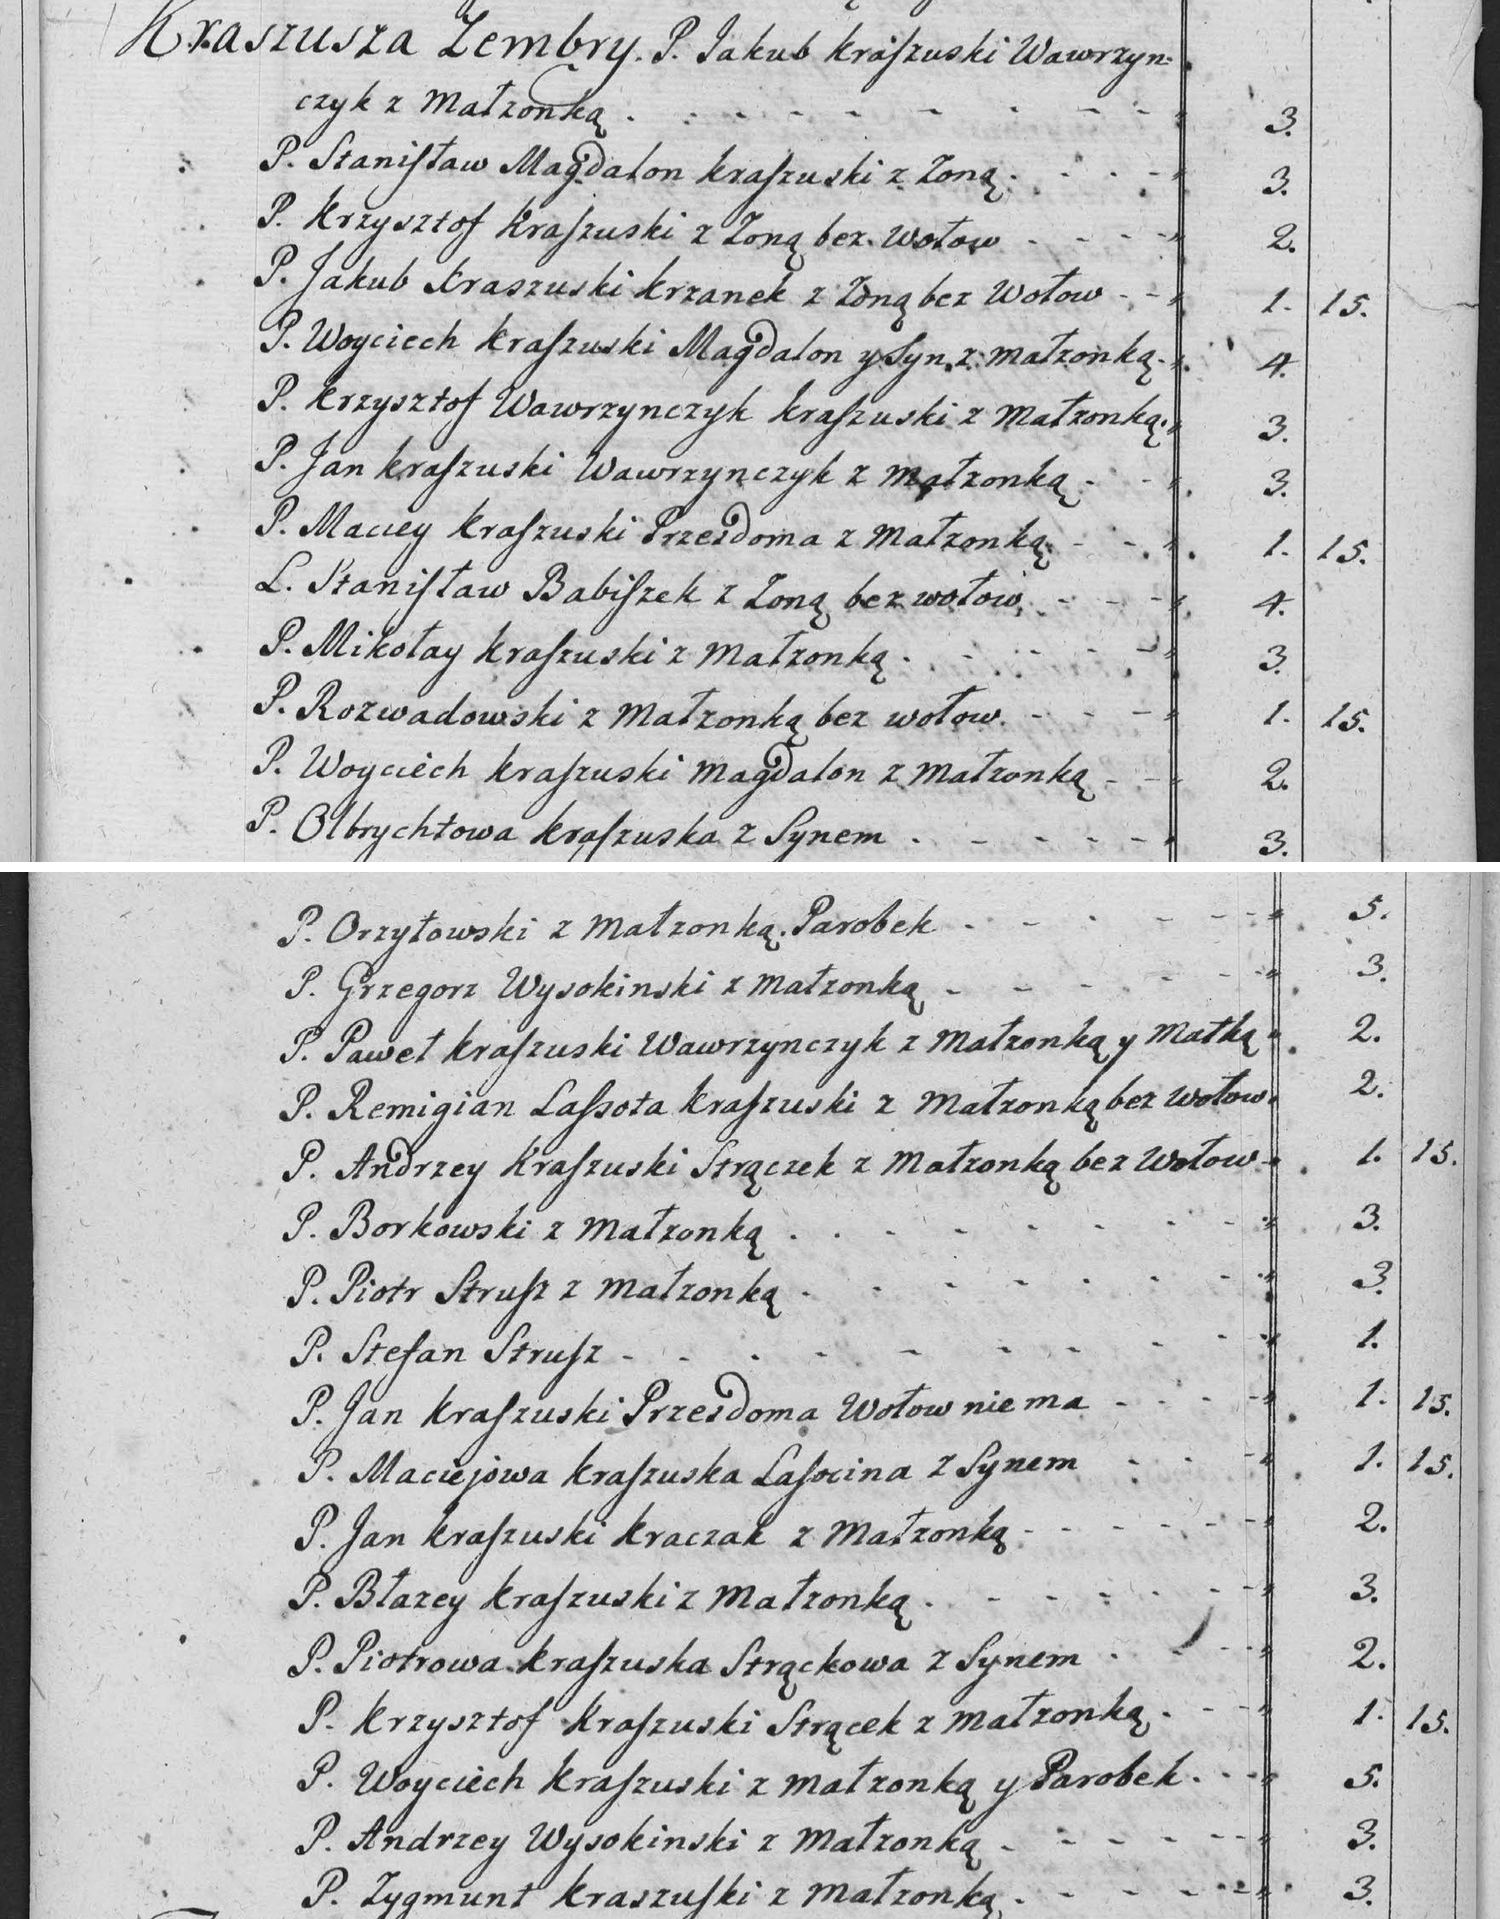 Kraszusza Zembry. P. Jakub Kraſzuski Wawrzyn-
czyk z Małzonką . - - - - - - 3.
P. Staniſław Magdalon Kraſzuski z Zoną . - - - 3.
P. Krzysztof Kraſzuski z Zoną bez Wołow - - - 2.
P. Jakub Kraszuski Krzanek z Zoną bez Wołow - - 1. 15.
P. Woyciech Kraſzuski Magdalon y Syn z małzonką - 4.
P. Krzysztof Wawrzynczyk Kraſzuski z Małzonką 3.
P. Jan Kraſzuski Wawrzynczyk z małzonką - - 3.
P. Maciey Kraſzuski Przezdoma z Małzonką - - 1. 15.
L. Staniſław Babiſzek z Zoną bez wołow - - - 4.
P. Mikołay Kraſzuski z Małzonką . - - - - 3.
P. Rozwadowski z Małzonką bez wołow. - - - 1. 15.
P. Woyciech Kraſzuski Magdalon z Małzonką - - 2.
P. Olbrychtowa Kraſzuska z Synem . - - - - 3.
P. Orzyłowski z Małzonką. Parobek . - - - - 5.
P. Grzegorz Wysokinski z małzonką - - - - 3.
P. Paweł Kraſzuski Wawrzynczyk z Małzonką y Matką 2.
P. Remigian Laſsota Kraſzuski z Małzonką bez Wołow 2.
P. Andrzey Kraſzuski Strączek z Małzonką bez Wołow 1. 15.
P. Borkowski z Małzonką . . - - - - - 3.
P. Piotr Struſz z małzonką . - - - - - 3.
P. Stefan Struſz - - - - - - - 1.
P. Jan Kraſzuski Przezdoma Wołow nie ma - - - 1. 15.
P. Maciejowa Kraſzuska Laſocina z Synem - - - 1. 15.
P. Jan Kraſzuski Kraczak z Małzonką - - - - 2.
P. Błazey Kraſzuski z Małzonką . - - - - 3.
P. Piotrowa Kraſzuska Strąckowa z Synem . - - 2.
P. Krzysztof Kraſzuski Strącek z małzonką . - - 1. 15.
P. Woyciech Kraſzuski z małzonką y Parobek . - - 5.
P. Andrzey Wysokinski z małzonką . - - - - 3.
P. Zygmunt Kraszuſki z małzonką . - - - - 3.